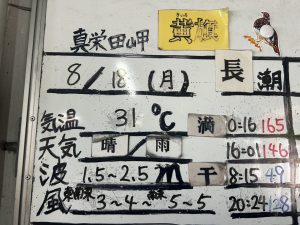 真栄田岬 黄旗
8/18(月) 長潮
気温 31℃ 満 0:16 165
天気 晴/雨 16:01 146
波 1.5~2.5m 干 8:15 49
風 3~4~ 5~5 20:24 128